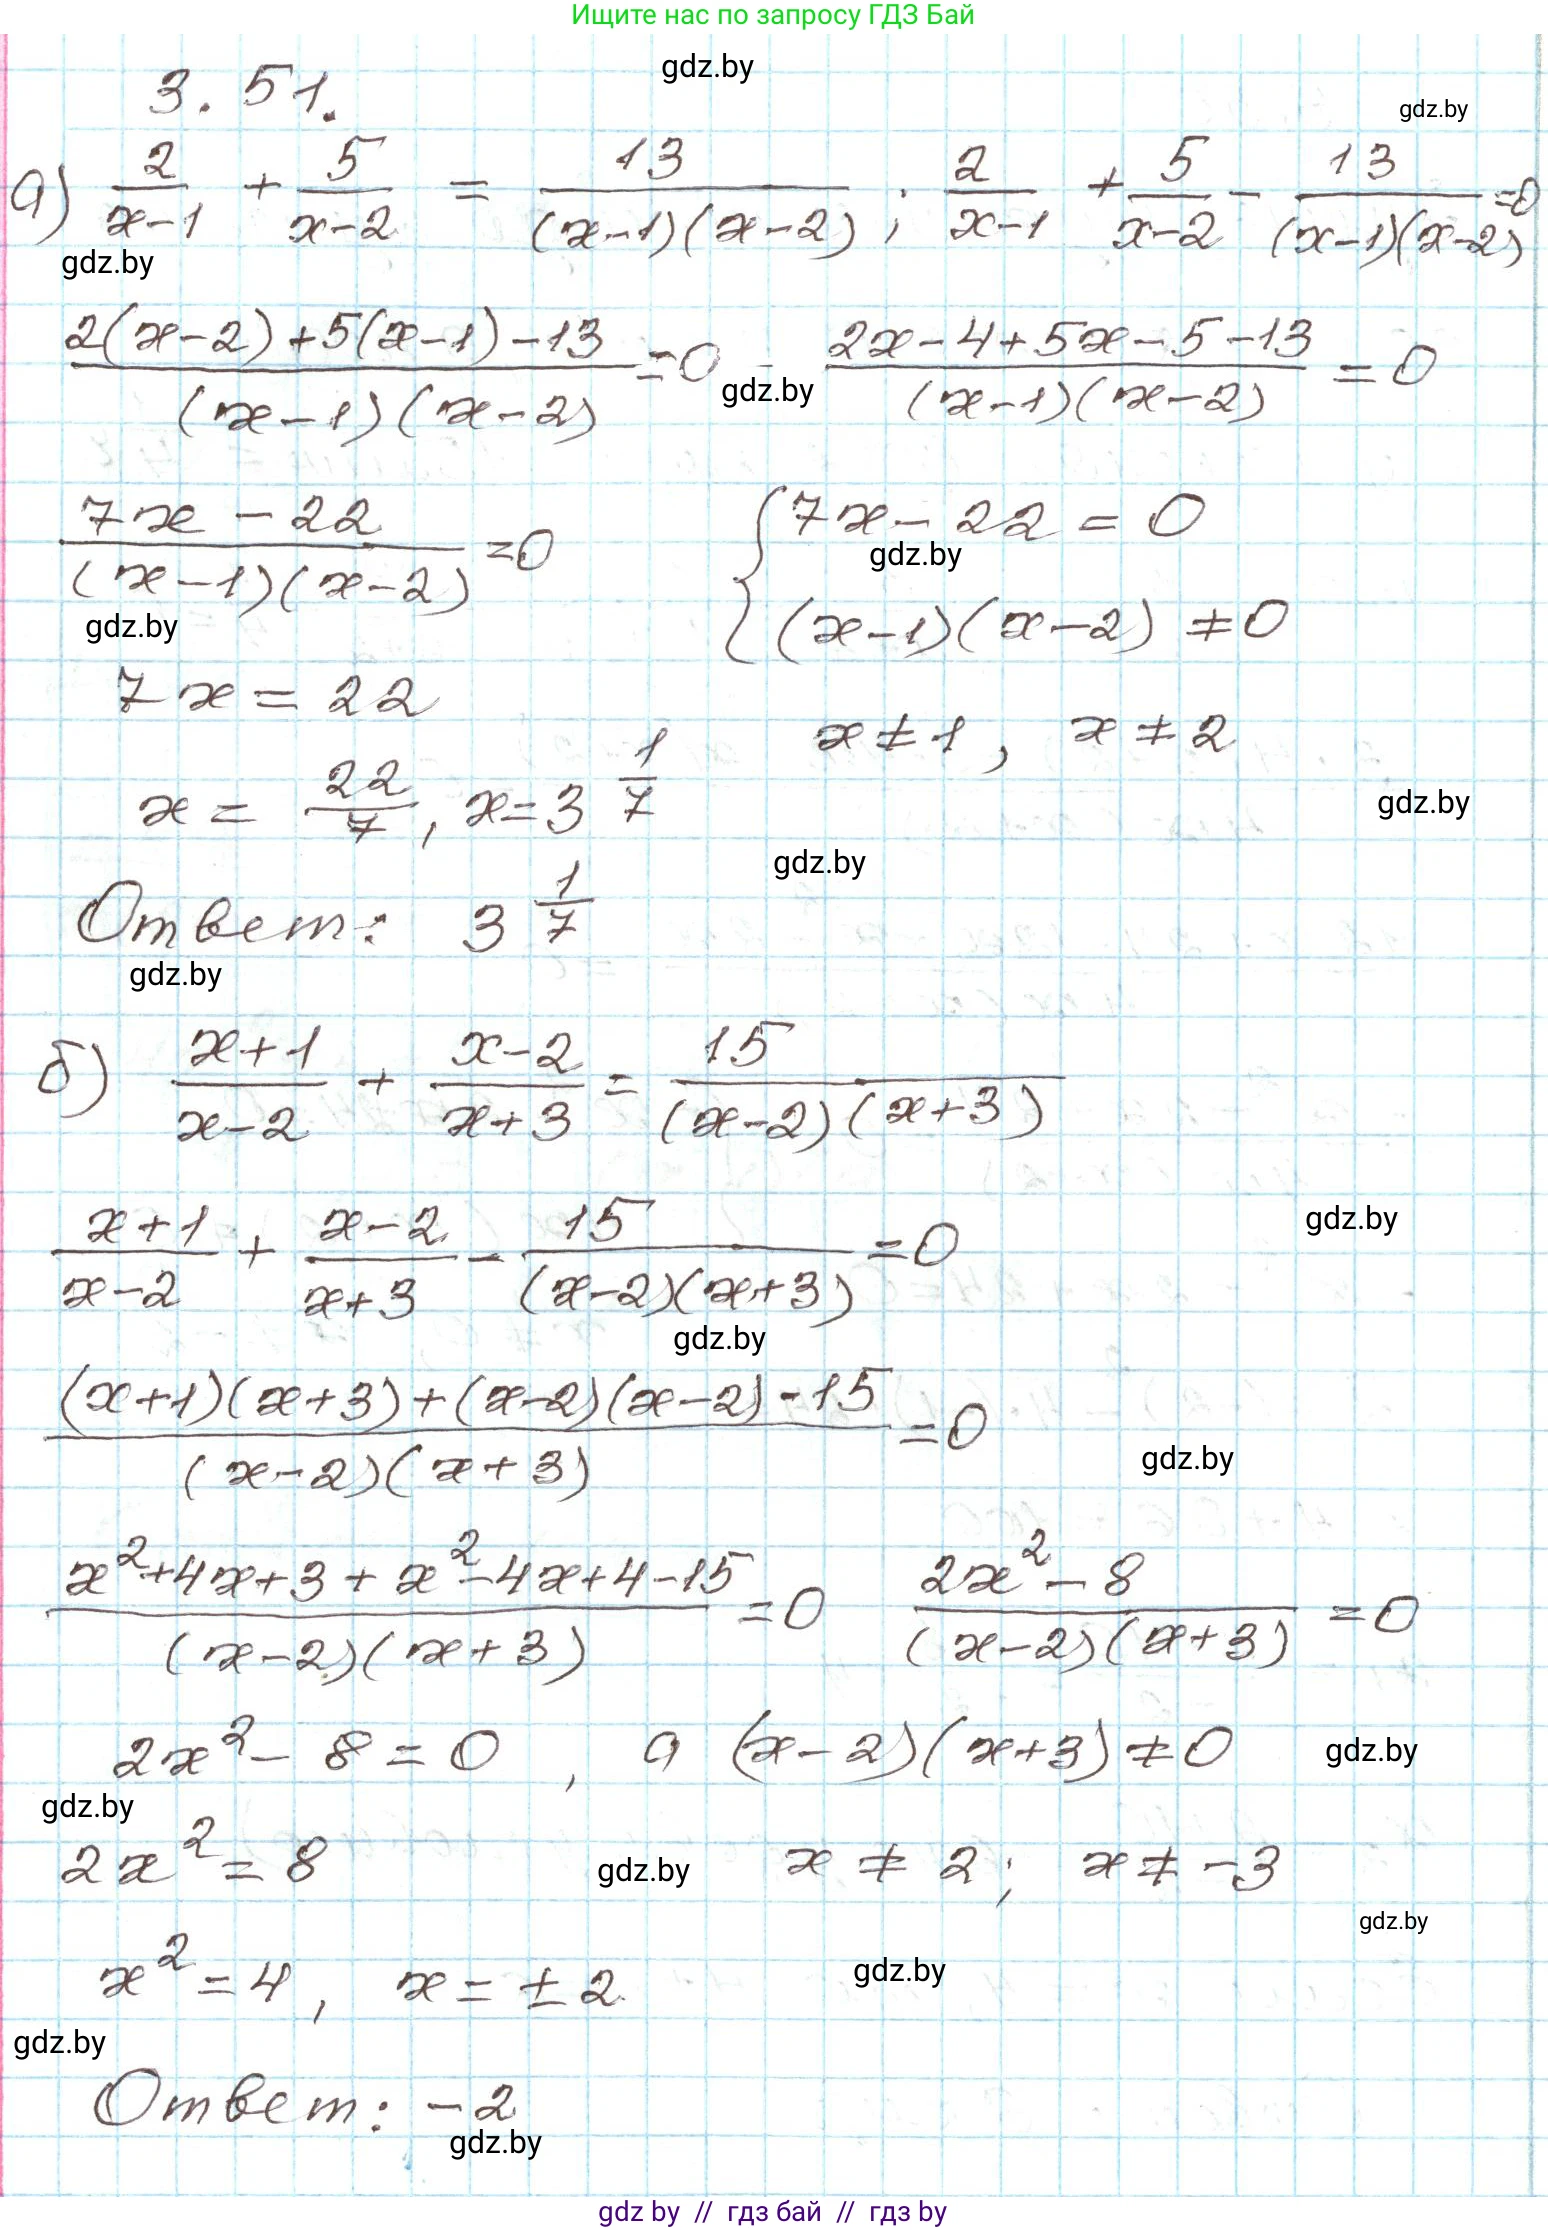 Ищите нас по запросу ГДЗ Бай
gdz.by
3.51.
gdz.by
а) 2/(x-1) + 5/(x-2) = 13/((x-1)(x-2)); 2/(x-1) + 5/(x-2) - 13/((x-1)(x-2)) = 0
gdz.by
(2(x-2)+5(x-1)-13)/((x-1)(x-2)) = 0 (2x-4+5x-5-13)/((x-1)(x-2)) = 0
gdz.by
(7x-22)/((x-1)(x-2)) = 0 { 7x-22 = 0
gdz.by
(x-1)(x-2) ≠ 0
gdz.by
7x = 22
x ≠ 1, x ≠ 2
x = 22/7, x = 3 1/7
gdz.by
gdz.by
Ответ: 3 1/7
gdz.by
б) (x+1)/(x-2) + (x-2)/(x+3) = 15/((x-2)(x+3))
(x+1)/(x-2) + (x-2)/(x+3) - 15/((x-2)(x+3)) = 0
gdz.by
gdz.by
((x+1)(x+3)+(x-2)(x-2)-15)/((x-2)(x+3)) = 0
gdz.by
(x²+4x+3+x²-4x+4-15)/((x-2)(x+3)) = 0 (2x²-8)/((x-2)(x+3)) = 0
2x²-8 = 0, а (x-2)(x+3) ≠ 0
gdz.by
gdz.by
2x² = 8 x ≠ 2; x ≠ -3
gdz.by
gdz.by
x² = 4, x = ±2
gdz.by
gdz.by
Ответ: -2
gdz.by
gdz by // гдз бай // гдз by